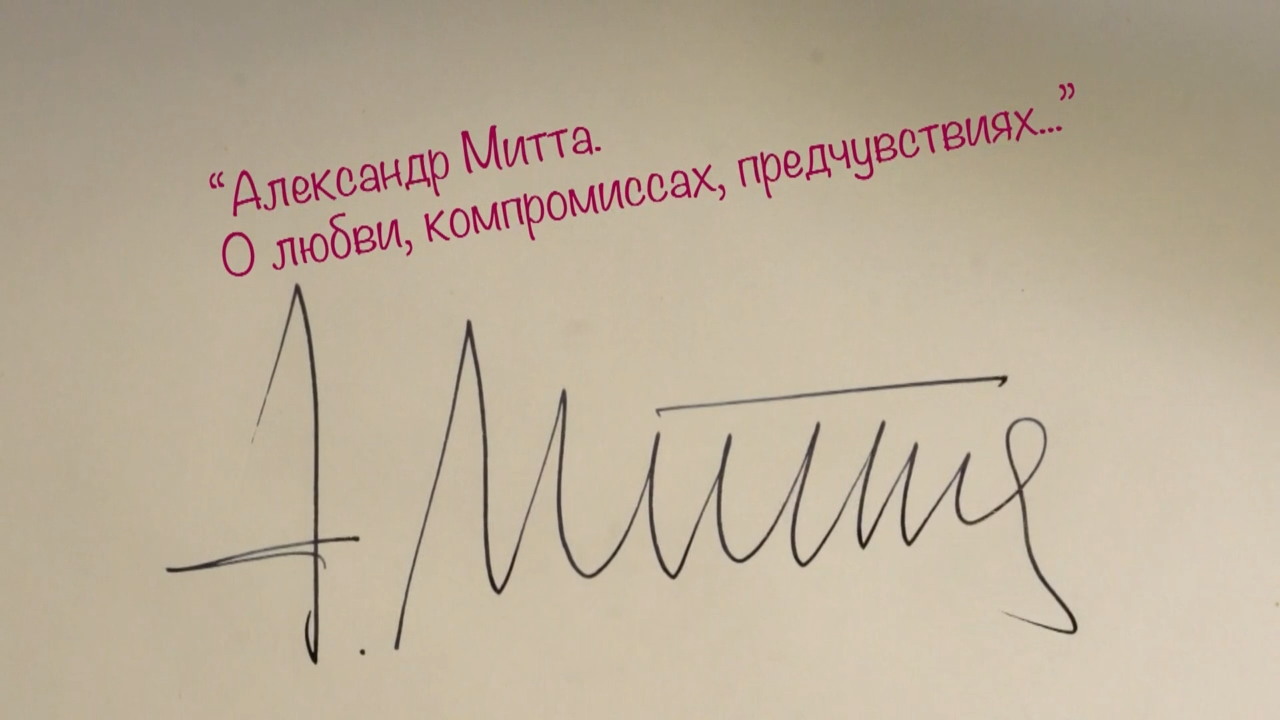 “Александр Митта.
О любви, компромиссах, предчувствиях...”
А. Митта